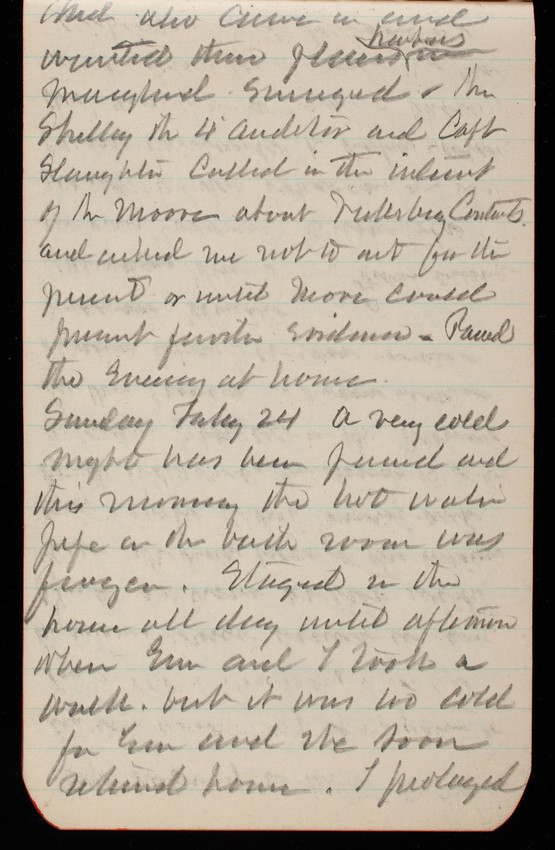 also came in and
wanted three
Maryland Surveyed & Mr
Shelley the 4 Auditor and Capt
Slaughter Called in the interest
of Mr Moore about Vicksburg Contests
and asked me not to act for the
present or until Moore could
present further Evidence - Passed
the Evening at home
Sunday Feby 24 A very cold
night has been passed and
this morning the hot water
pipe in the bath room was
frozen. Stayed in the
house all day until afternoon
when Em and I took a
walk. but it was too cold
for Em and she soon
returned home. I prolonged